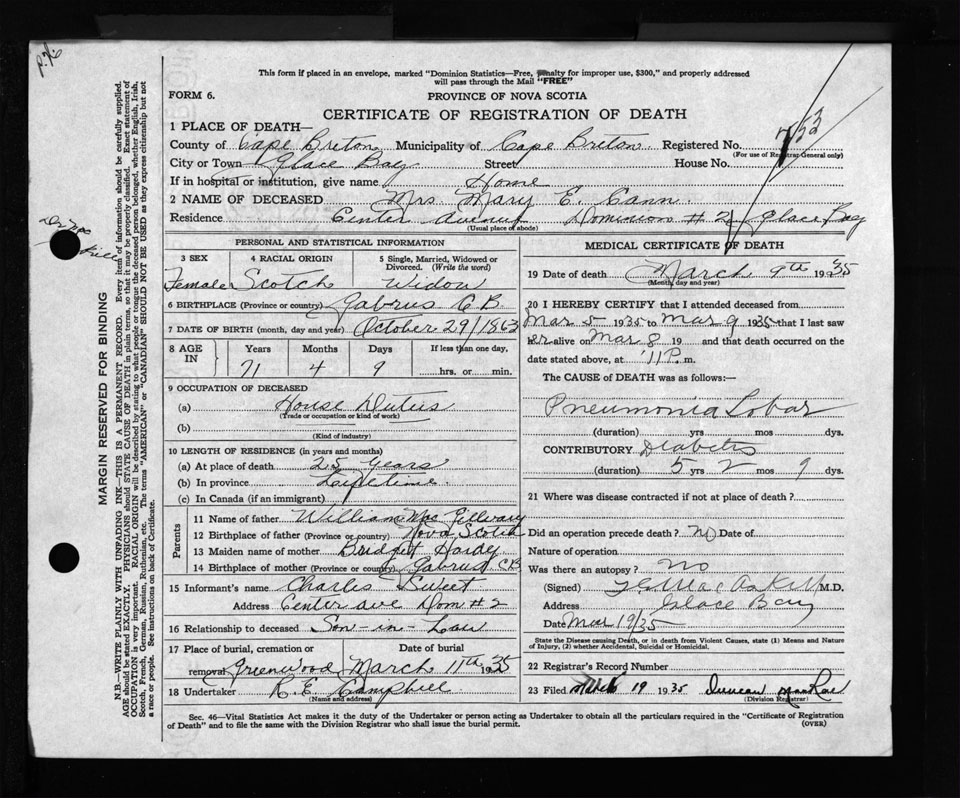 This form if placed in an envelope, marked "Dominion Statistics—Free, penalty for improper use, $300," and properly addressed
will pass through the Mail "FREE"
FORM 6. PROVINCE OF NOVA SCOTIA
CERTIFICATE OF REGISTRATION OF DEATH
753
1 PLACE OF DEATH—
County of Cape Breton Municipality of Cape Breton Registered No.
(For use of Registrar-General only)
City or Town Glace Bay Street House No.
If in hospital or institution, give name Home
2 NAME OF DECEASED Mrs Mary E. Cann.
Residence Center Avenue Dominion # 2, Glace Bay
(Usual place of abode)
PERSONAL AND STATISTICAL INFORMATION
3 SEX 4 RACIAL ORIGIN 5 Single, Married, Widowed or
Divorced. (Write the word)
Female Scotch Widow
6 BIRTHPLACE (Province or country) Gabrus C B.
7 DATE OF BIRTH (month, day and year) October 29/1863
8 AGE IN Years Months Days If less than one day,
71 4 9 hrs. or min.
9 OCCUPATION OF DECEASED
(a) House Duties
(Trade or occupation or kind of work)
(b)
(Kind of industry)
10 LENGTH OF RESIDENCE (in years and months)
(a) At place of death 25 years
(b) In province Lifetime.
(c) In Canada (if an immigrant)
Parents
11 Name of father William MacGillvary
12 Birthplace of father (Province or country) Nova Scotia
13 Maiden name of mother Bridget Hardy
14 Birthplace of mother (Province or country) Gabrus CB
15 Informant's name Charles Sweet
Address Center ave Dom # 2
16 Relationship to deceased Son-in-Law
17 Place of burial, cremation or Date of burial
removal Greenwood March 11th 1935
18 Undertaker R. E. Campbell
(Name and address)
MEDICAL CERTIFICATE OF DEATH
19 Date of death March 9th 1935
(Month, day and year)
20 I HEREBY CERTIFY that I attended deceased from
Mar 5 1935 to Mar 9 1935 that I last saw
her alive on Mar 8 19 and that death occurred on the
date stated above, at 11 P. m.
The CAUSE of DEATH was as follows:—
Pneumonia Lobar
(duration) yrs mos dys.
CONTRIBUTORY Diabetes
(duration) 5 yrs 2 mos 9 dys.
21 Where was disease contracted if not at place of death?
Did an operation precede death? No Date of
Nature of operation
Was there an autopsy? No
(Signed) MacAskill M.D.
Address Glace Bay
Date Mar 19/35
State the Disease causing Death, or in death from Violent Causes, state (1) Means and Nature
of Injury, (2) whether Accidental, Suicidal or Homicidal.
22 Registrar's Record Number
23 Filed March 19 1935 Duncan MacRae
(Division Registrar)
Sec. 46—Vital Statistics Act makes it the duty of the Undertaker or person acting as Undertaker to obtain all the particulars required in the "Certificate of Registration
of Death" and to file the same with the Division Registrar who shall issue the burial permit. (OVER)
MARGIN RESERVED FOR BINDING
N.B.—WRITE PLAINLY WITH UNFADING INK—THIS IS A PERMANENT RECORD. Every item of information should be carefully supplied.
AGE should be stated EXACTLY. PHYSICIANS should STATE CAUSE OF DEATH in plain terms, so that it may be properly classified. Exact statement of
OCCUPATION is very important. RACIAL ORIGIN will be described by stating to what people or tongue the deceased person belonged, whether English, Irish,
Scotch, French, German, Russian, Ruthenian, etc. The terms "AMERICAN" or "CANADIAN" SHOULD NOT BE USED as they express citizenship but not
a race or people. See instructions on back of Certificate.